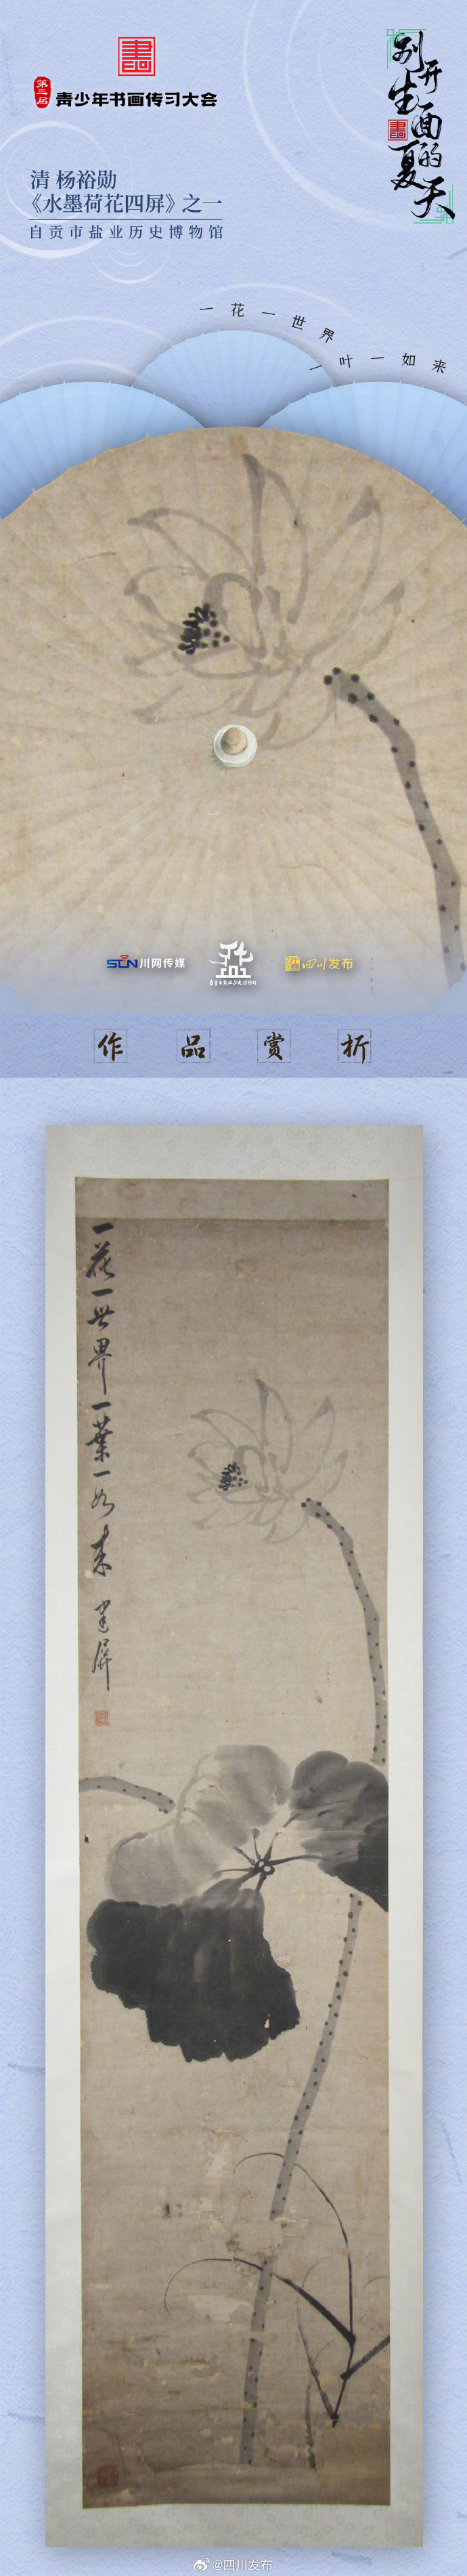 第三届
青少年书画传习大会
别开生面的夏天
清 杨裕勋
《水墨荷花四屏》之一
自贡市盐业历史博物馆
一花一世界
一叶一如来
SCN川网传媒
四川发布
作品赏析
一花一世界一葉一如来 建屏
@四川发布